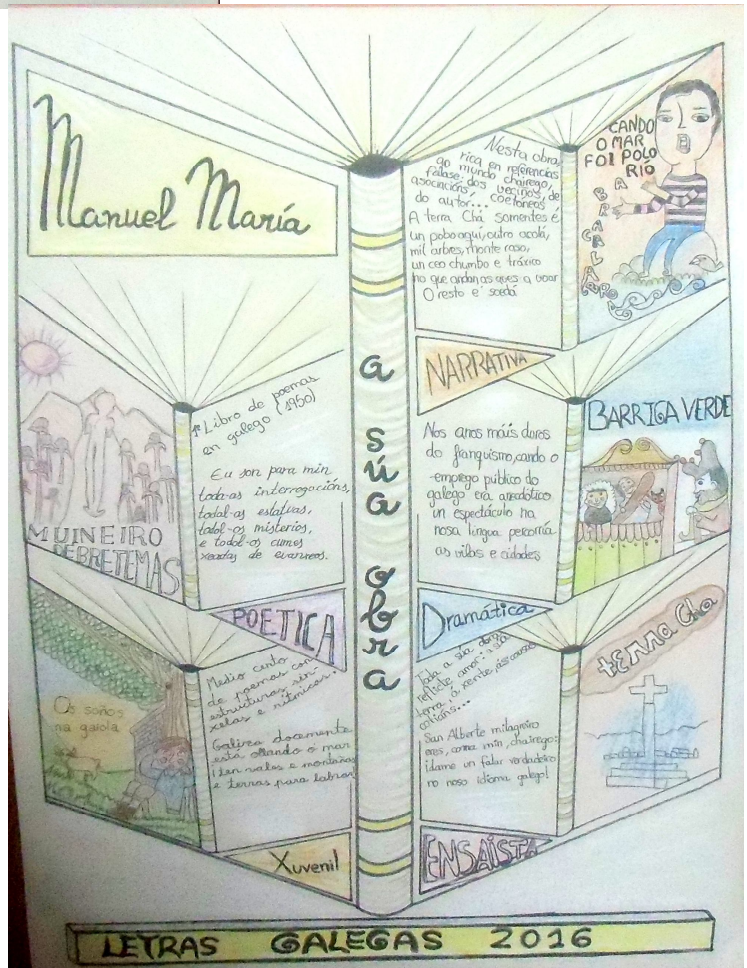 Manuel María
a súa obra
MUIÑEIRO
DE BRETEMAS
1º Libro de poemas
en galego (1950)
Eu son para min
toda-as interrogacións,
todal-as estatuas,
todol-os misterios,
e todol-os cumes
xeadas de
POETICA
Os soños
na gaiola
Medio cento
de poemas con
estructuras sin
xelas e rítmicas.
Galiza docemente
está ollando o mar
ten vales e montañas
e terras para labrar
Xuvenil
Nesta obra,
rica en referencias
ao mundo chairego,
fálase dos veciños, de
asociacións, coetáneos
do autor...
A terra Chá somentes é
un pobo aquí, outro acolá,
mil arbres, monte raso,
un ceo chumbo e tráxico
no que andan as aves a voar
O resto é soedá
CANDO
O MAR
FOI POLO
RIO
NARRATIVA
BARRIGA VERDE
Nos anos máis duros
do franquismo, cando o
emprego público do
galego era anecdótico
un espectáculo na
nosa lingua percorría
as vilas e cidades
Dramática
terra Cha
Toda a súa obra
reflicte amor: a súa
terra, á xente, ás cousas
cotiáns...
San Alberte milagreiro
eres, coma min, chairego:
dame un falar verdadeiro
no noso idioma galego!
ENSAÍSTA
LETRAS GALEGAS 2016